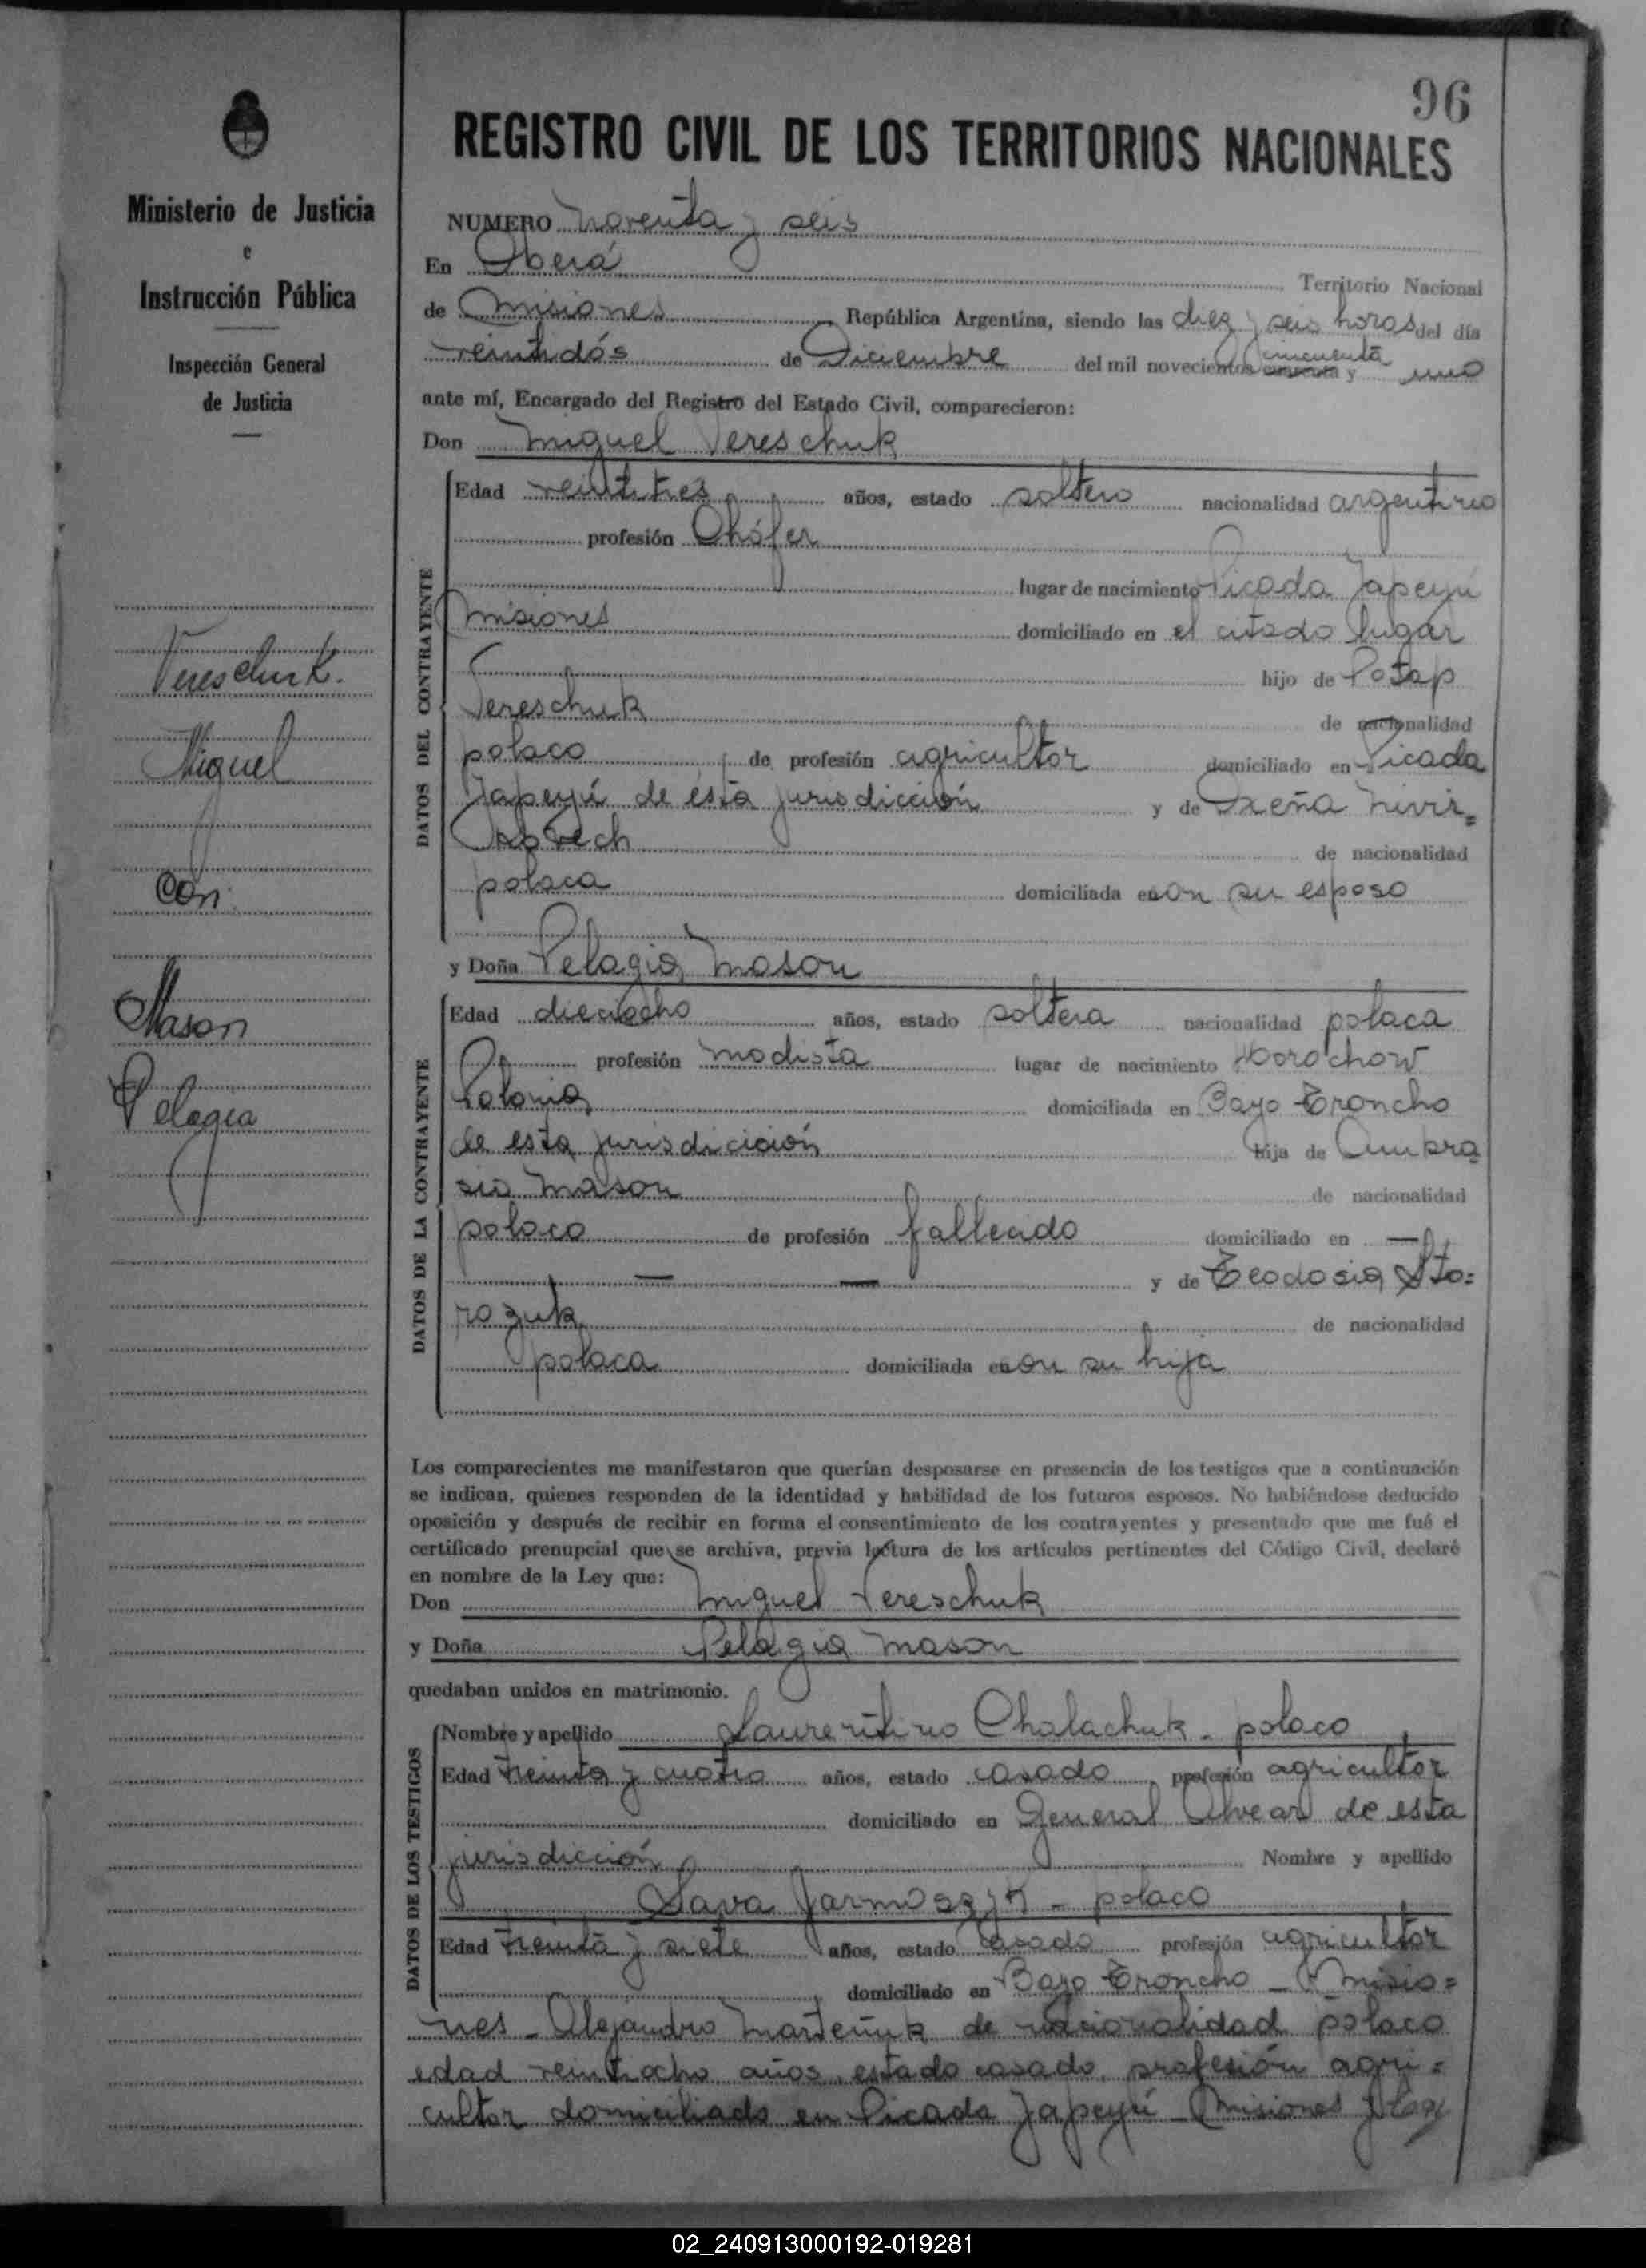 96
REGISTRO CIVIL DE LOS TERRITORIOS NACIONALES
Ministerio de Justicia
e
Instrucción Pública
Inspección General
de Justicia
Tereschuk.
Miguel
con
Mason
Pelagia
NUMERO noventa y seis
En Oberá Territorio Nacional
de Misiones República Argentina, siendo las diez y seis horas del día
veintidós de Diciembre del mil novecientos cincuenta y uno
ante mí, Encargado del Registro del Estado Civil, comparecieron:
Don Miguel Tereschuk
DATOS DEL CONTRAYENTE
Edad veintitres años, estado soltero nacionalidad argentino
profesión Chófer
lugar de nacimiento Picada Yapeyú
Misiones domiciliado en el citado lugar
hijo de Potap
Tereschuk de nacionalidad
polaco de profesión agricultor domiciliado en Picada
Yapeyú de ésta jurisdicción y de
de nacionalidad
polaca domiciliada en con su esposo
y Doña Pelagia Mason
DATOS DE LA CONTRAYENTE
Edad dieciocho años, estado soltera nacionalidad polaca
profesión modista lugar de nacimiento Horochow
Polonia domiciliada en Bayo Troncho
de esta jurisdicición hija de Ambra
sio Mason de nacionalidad
polaco de profesión fallecido domiciliado en —
— — y de Teodosia Sto=
rozuk de nacionalidad
polaca domiciliada en con su hija
Los comparecientes me manifestaron que querían desposarse en presencia de los testigos que a continuación
se indican, quienes responden de la identidad y habilidad de los futuros esposos. No habiéndose deducido
oposición y después de recibir en forma el consentimiento de los contrayentes y presentado que me fué el
certificado prenupcial que se archiva, previa lectura de los artículos pertinentes del Código Civil, declaré
en nombre de la Ley que:
Don Miguel Tereschuk
y Doña Pelagia Mason
quedaban unidos en matrimonio.
DATOS DE LOS TESTIGOS
Nombre y apellido Laurentino Chalachuk - polaco
Edad treinta y cuatro años, estado casado profesión agricultor
domiciliado en General Alvear de esta
jurisdicción Nombre y apellido
Sava Jarmoszyk - polaco
Edad treinta y siete años, estado casado profesión agricultor
domiciliado en Bayo Troncho - Misio=
nes - Alejandro Marteñuk de nacionalidad polaco
edad veintiocho años, estado casado, profesión agri=
cultor domiciliado en Picada Yapeyú - Misiones
02_240913000192-019281